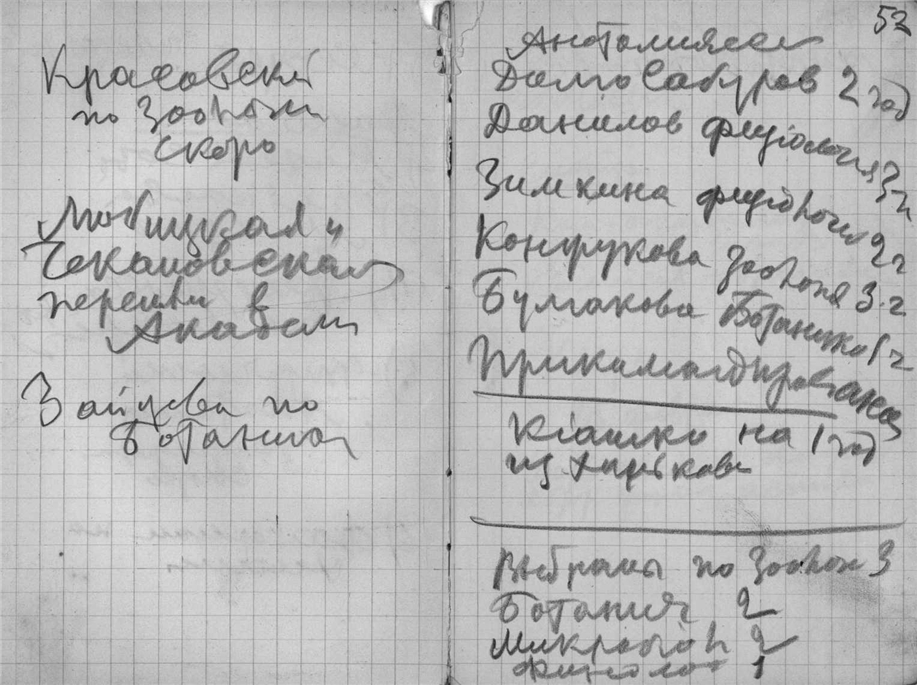 Красовский
по Зоологии
скоро
и
Чекановская
перешли в
Академи
Зайцева по
Ботаник
52
Долго Сабуров 2 год
Данилов физіологія 3 г
Зимкина физіологи 2 г
Зоологія 3 г
Булгакова Ботаника 1 г
Прикомандирована
Кіашко на 1 год
из Харькова
Выбраны по Зоологи 3
Ботания 2
Микробіол 2
1